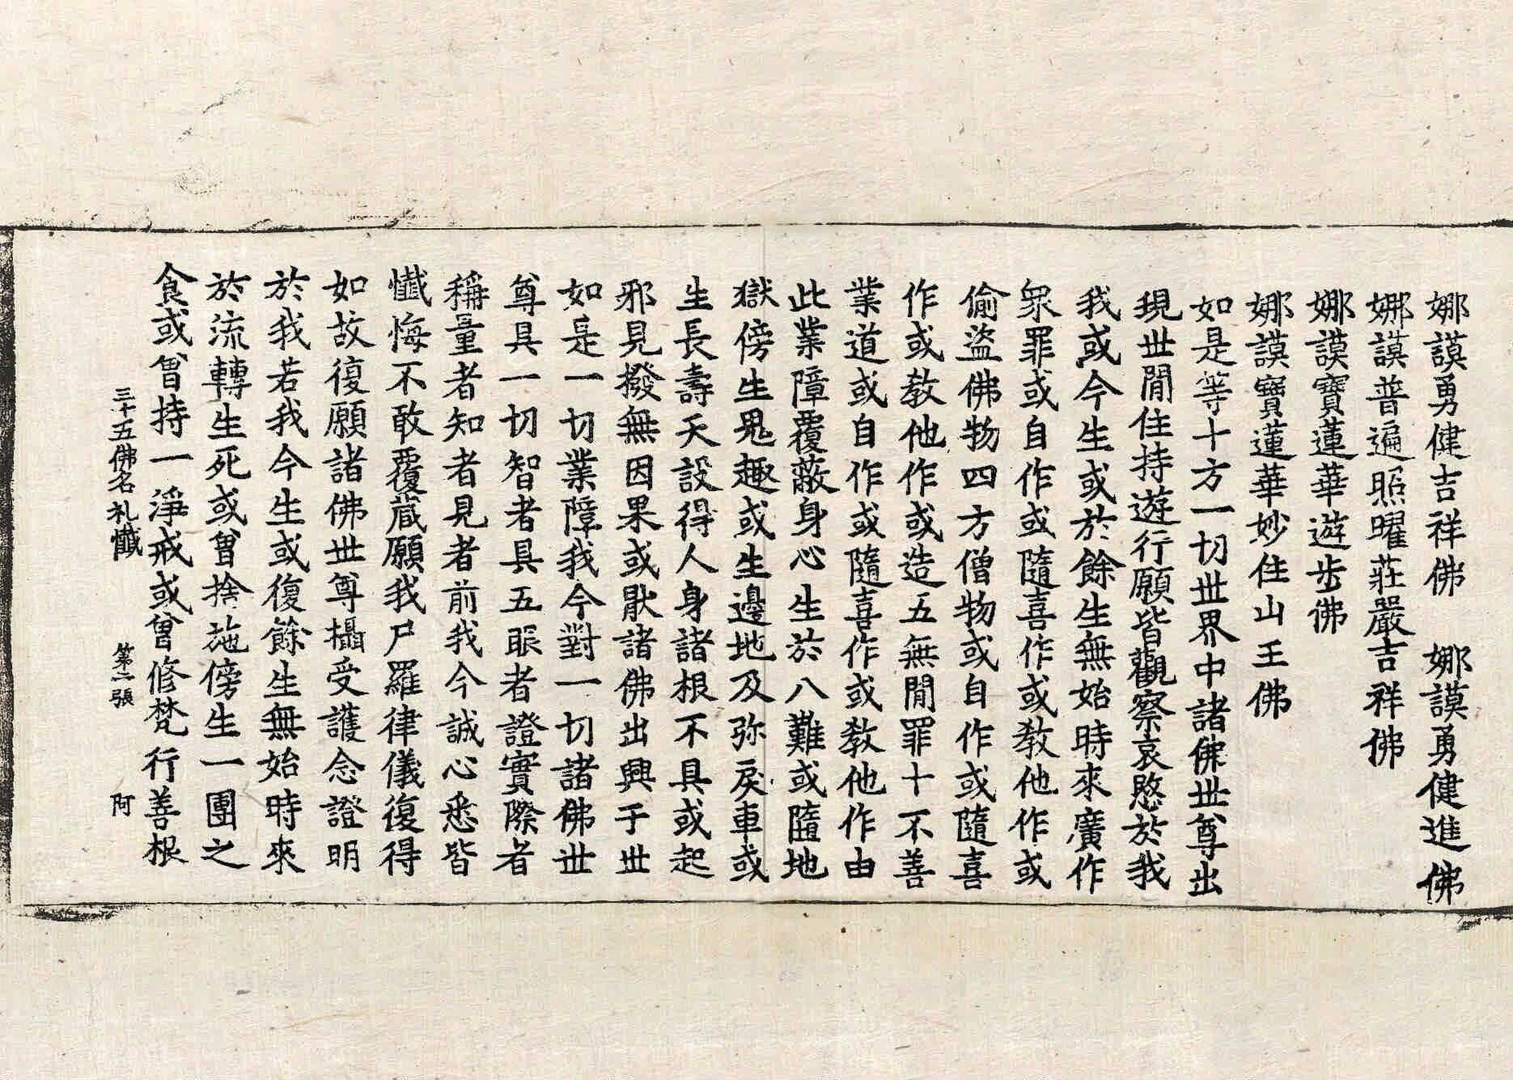 娜謨勇健吉祥佛　娜謨勇健進佛
娜謨普遍照曜莊嚴吉祥佛
娜謨寶蓮華遊步佛
娜謨寶蓮華妙住山王佛
如是等十方一切世界中諸佛世尊出
現世閒住持遊行願皆觀察哀愍於我
我或今生或於餘生無始時來廣作
衆罪或自作或隨喜作或教他作或
偷盜佛物四方僧物或自作或隨喜
作或教他作或造五無閒罪十不善
業道或自作或隨喜作或教他作由
此業障覆蔽身心生於八難或隨地
獄傍生鬼趣或生邊地及弥戾車或
生長壽天設得人身諸根不具或起
邪見撥無因果或猒諸佛出興于世
如是一切業障我今對一切諸佛世
尊具一切智者具五眼者證實際者
稱量者知者見者前我今誠心悉皆
懺悔不敢覆藏願我尸羅律儀復得
如故復願諸佛世尊攝受護念證明
於我若我今生或復餘生無始時來
於流轉生死或曾捨施傍生一團之
食或曾持一淨戒或曾修梵行善根
三十五佛名礼懺　第二張　阿